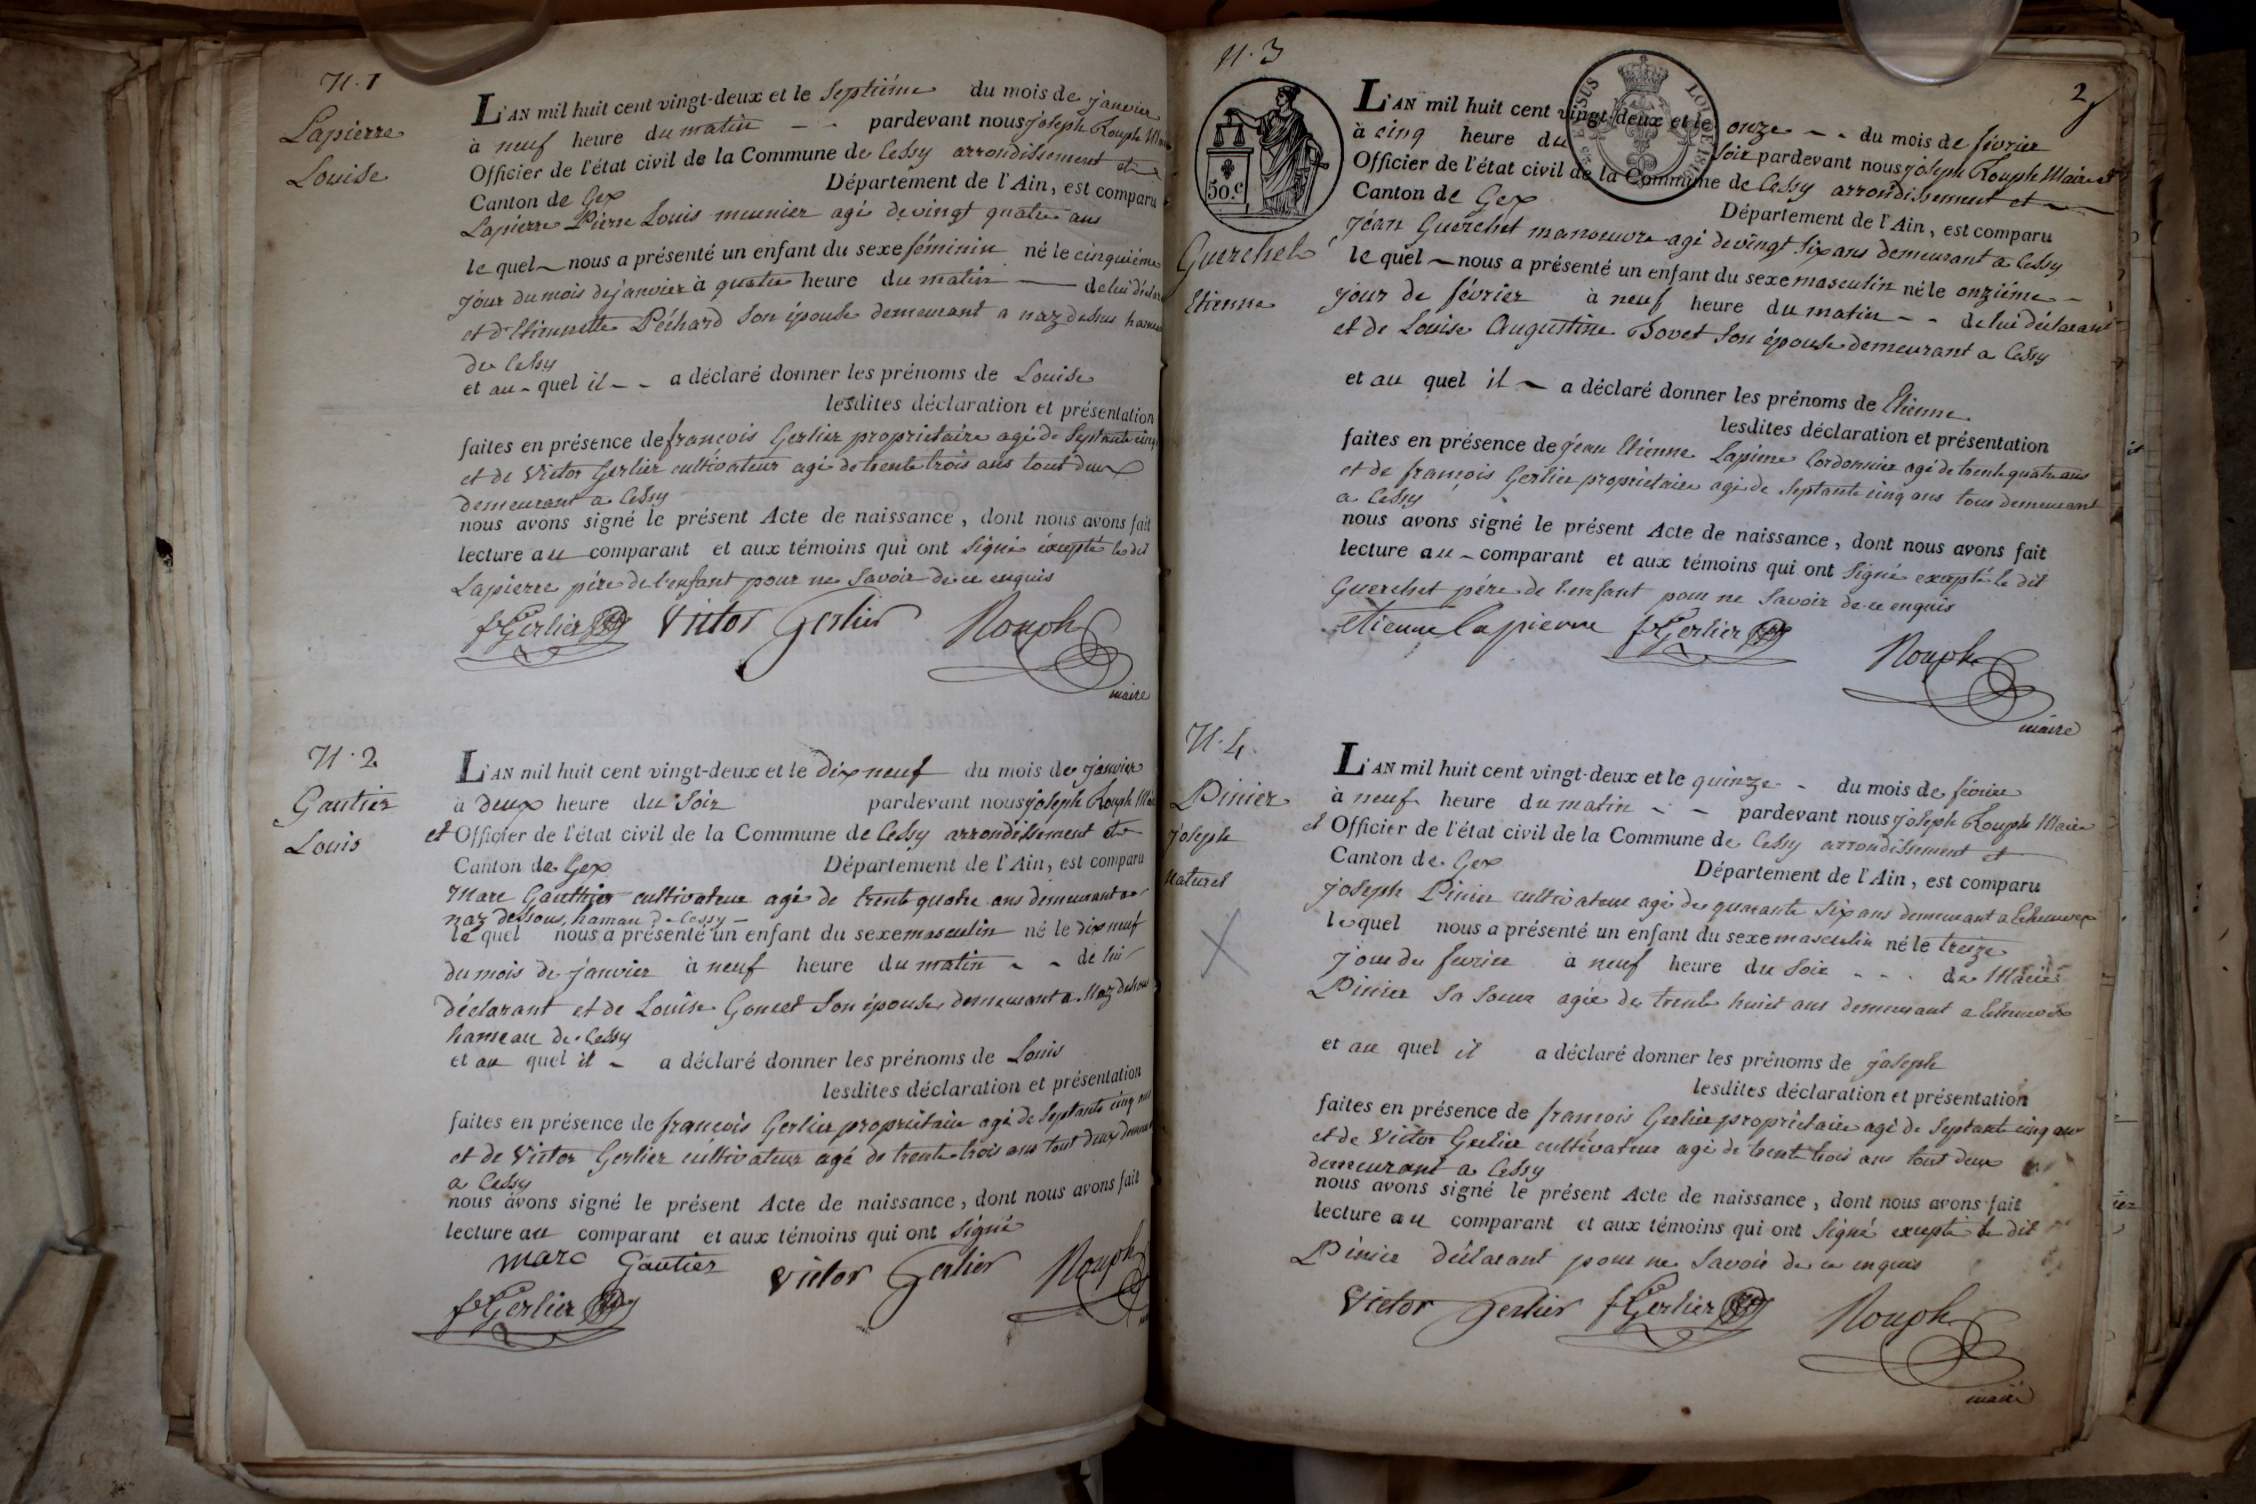 N. 1
Lapierre
Louise
L'AN mil huit cent vingt-deux et le septiéme du mois de janvier
à neuf heure du matin - - pardevant nous joseph Rouph Maire
Officier de l'état civil de la Commune de Cessy arrondissement et
Canton de Gex Département de l'Ain, est comparu
Lapierre Pierre Louis meunier agé de vingt quatre ans
le quel nous a présenté un enfant du sexe féminin né le cinquiéme
jour du mois de janvier à quatre heure du matin de lui déclarant
et d'Etiennette Péchard son épouse demeurant a naz dessus hameau
de Cessy
et au quel il - - a déclaré donner les prénoms de Louise
lesdites déclaration et présentation
faites en présence de françois Gerlier propriétaire agé de septante cinq
et de Victor Gerlier cultivateur agé de trente trois ans tout deux
demeurant a Cessy
nous avons signé le présent Acte de naissance, dont nous avons fait
lecture au comparant et aux témoins qui ont signé éxcepté le dit
Lapierre pére de l'enfant pour ne savoir de ce enquis
f Gerlier Victor Gerlier Rouph
maire
N. 2
Gautier
Louis
L'AN mil huit cent vingt-deux et le dix neuf du mois de janvier
à deux heure du soir pardevant nous joseph Rouph Maire
et Officier de l'état civil de la Commune de Cessy arrondissement et
Canton de Gex Département de l'Ain, est comparu
Marc Gauthier cultivateur agé de trente quatre ans demeurant a
naz dessous, hamau de Cessy -
le quel nous a présenté un enfant du sexe masculin né le dix neuf
du mois de janvier à neuf heure du matin - - de lui
déclarant et de Louise Goncet son épouse demeurant a Naz dessous
hameau de Cessy
et au quel il - a déclaré donner les prénoms de Louis
lesdites déclaration et présentation
faites en présence de françois Gerlier propriétaire agé de septante cinq ans
et de Victor Gerlier cultivateur agé de trente trois ans tout deux demeurant
a Cessy
nous avons signé le présent Acte de naissance, dont nous avons fait
lecture au comparant et aux témoins qui ont signé
marc Gautier Victor Gerlier Rouph
f Gerlier
N. 3
2
50 c.
LOI DE
Guerchet
Etienne
L'AN mil huit cent vingt-deux et le onze - - du mois de février
à cinq heure du soir pardevant nous joseph Rouph Maire et
Officier de l'état civil de la Commune de Cessy arrondissement et
Canton de Gex Département de l'Ain, est comparu
Jéan Guerchet manoeuvre agé de vingt six ans demeurant a Cessy
le quel nous a présenté un enfant du sexe masculin né le onziéme -
jour de février à neuf heure du matin - - de lui déclarant
et de Louise Augustine Bovet son épouse demeurant a Cessy
et au quel il a déclaré donner les prénoms de Etienne
lesdites déclaration et présentation
faites en présence de jéan Etienne Lapierre Cordonnier agé de trente quatre ans
et de françois Gerlier propriétaire agé de septante cinq ans tous demeurant
a Cessy
nous avons signé le présent Acte de naissance, dont nous avons fait
lecture au - comparant et aux témoins qui ont signé excepté le dit
Guerchet pére de l'enfant pour ne savoir de ce enquis
etienne lapierre f Gerlier
Rouph
maire
N. 4
Pinier
joseph
Naturel
L'AN mil huit cent vingt-deux et le quinze - du mois de février
à neuf heure du matin - - pardevant nous joseph Rouph Maire
et Officier de l'état civil de la Commune de Cessy arrondissement et
Canton de Gex Département de l'Ain, est comparu
joseph Pinier cultivateur agé de quarante six ans demeurant a Echenevex
le quel nous a présenté un enfant du sexe masculin né le treize
jour de fevrier à neuf heure du soir - - - de Marie
Pinier sa soeur agée de trente huict ans demeurant a Echenevex
et au quel il a déclaré donner les prénoms de joseph
lesdites déclaration et présentation
faites en présence de françois Gerlier propriétaire agé de septante cinq ans
et de Victor Gerlier cultivateur agé de trente trois ans tout deux
demeurant a Cessy
nous avons signé le présent Acte de naissance, dont nous avons fait
lecture au comparant et aux témoins qui ont signé excepté le dit
Pinier déclarant pour ne savoir de ce enquis
Victor Gerlier f Gerlier Rouph
maire